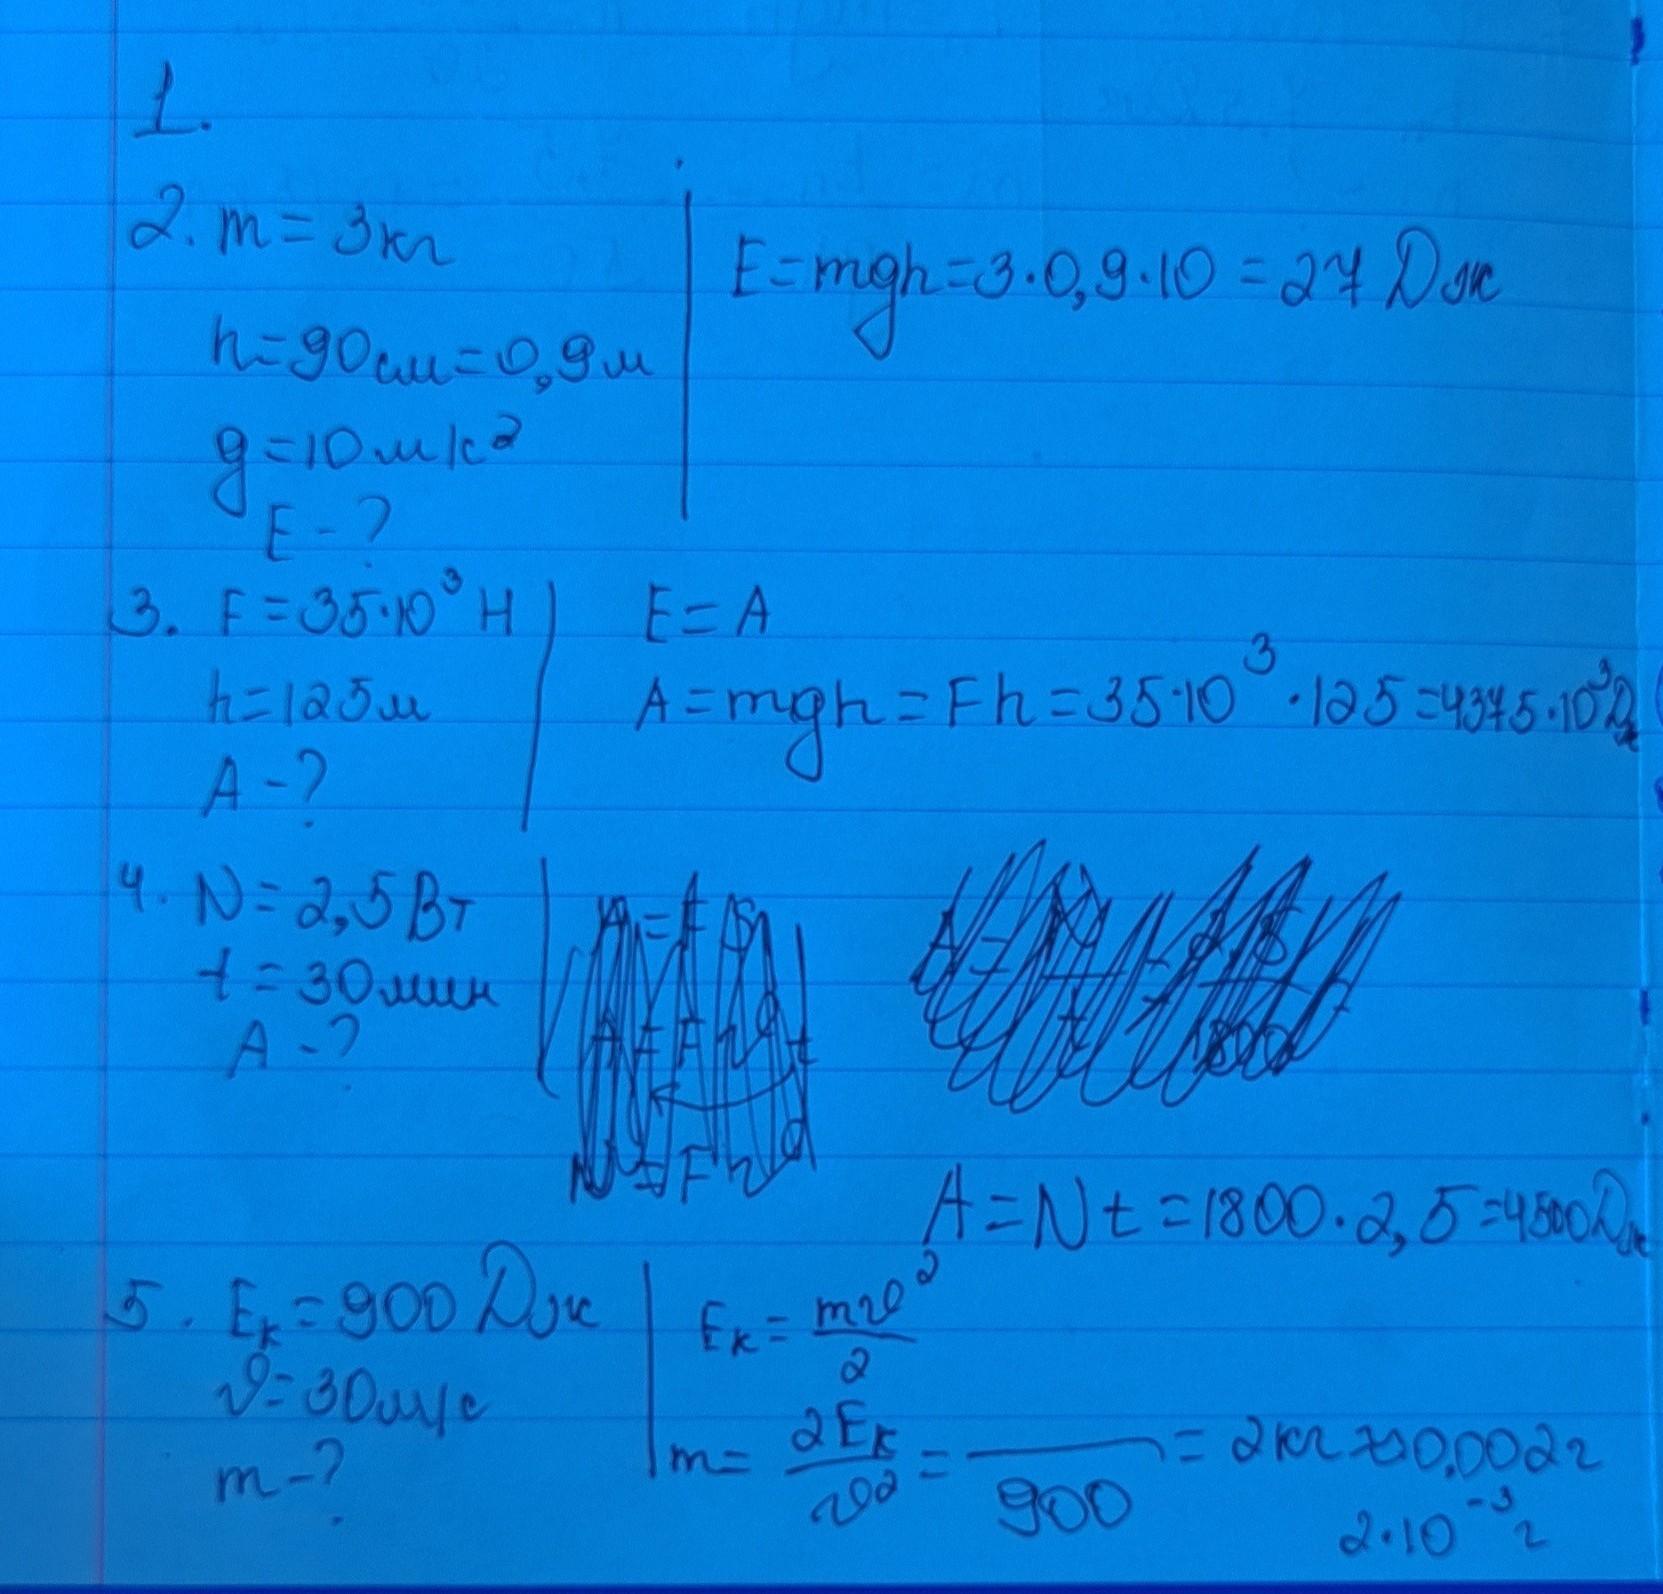 1.
2. m = 3кг
h=90см=0,9м
g=10м/с²
E - ?
E=mgh=3·0,9·10=27 Дж
3. F=35·10³ Н
h=125м
A - ?
E=A
A=mgh=Fh=35·10³·125=4375·10³Дж
4. N=2,5Вт
t=30мин
A - ?
A=Nt=1800·2,5=4500Дж
5. Eк=900 Дж
v=30м/с
m - ?
Eк=mv²/2
m=2Eк/v²= /900=2кг 0,002г
2·10⁻³г